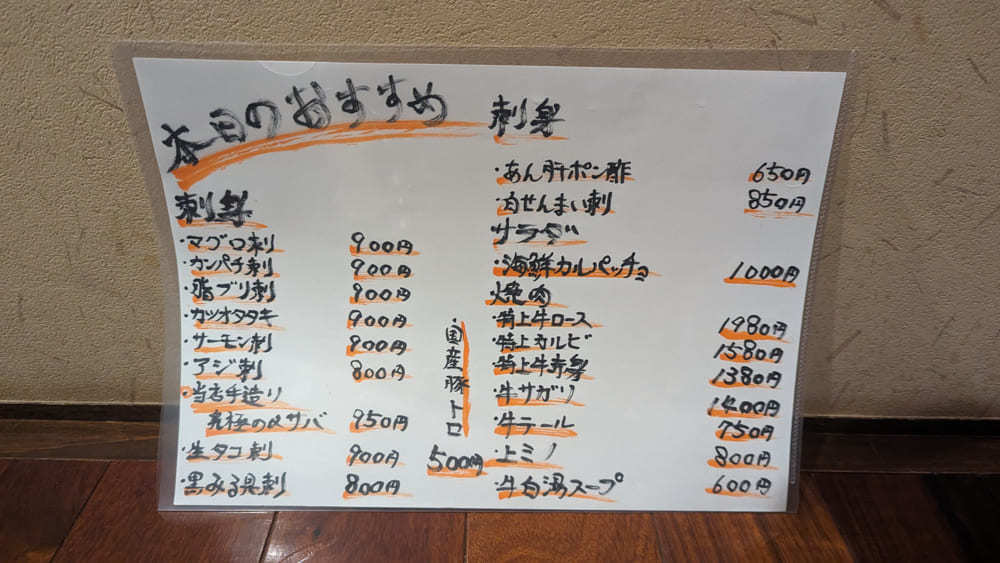 本日のおすすめ
刺身
・マグロ刺 900円
・カンパチ刺 900円
・脂ブリ刺 900円
・カツオタタキ 900円
・サーモン刺 900円
・アジ刺 800円
・当店手造り
究極の〆サバ 950円
・生タコ刺 900円
・黒みる貝刺 800円
・国産豚トロ
500円
刺身
・あん肝ポン酢 650円
・肉せんまい刺 850円
サラダ
・海鮮カルパッチョ 1000円
焼肉
・特上牛ロース 1980円
・特上カルビ 1580円
・特上牛赤身 1380円
・牛サガリ 1400円
・牛テール 750円
・上ミノ 800円
・牛白湯スープ 600円